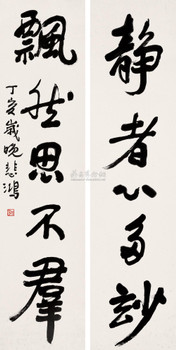 静者心多妙
飘然思不羣
丁亥岁晚悲鸿